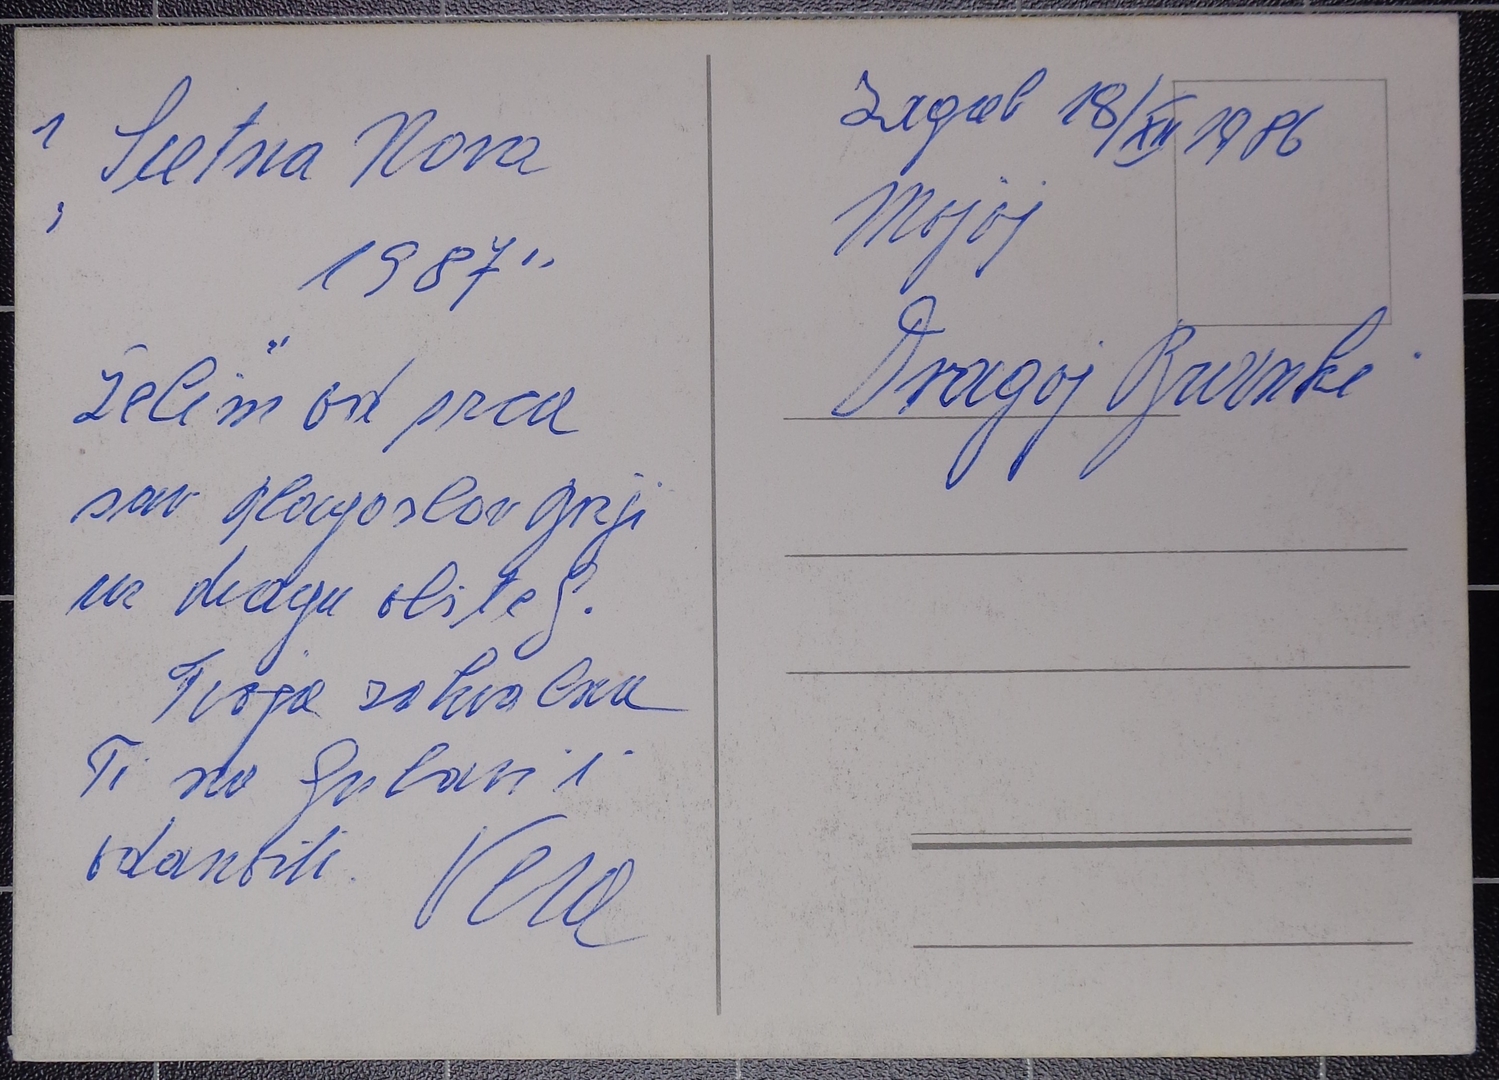 „Sretna Nova
1987"
Želim od srca
sav blagoslov Božji
uz dragu obitelj.
Tvoja zahvalna
Ti na ljubavi i
odanosti. Vera
Zagreb 18/XII 1986
Mojoj
Dragoj Branki